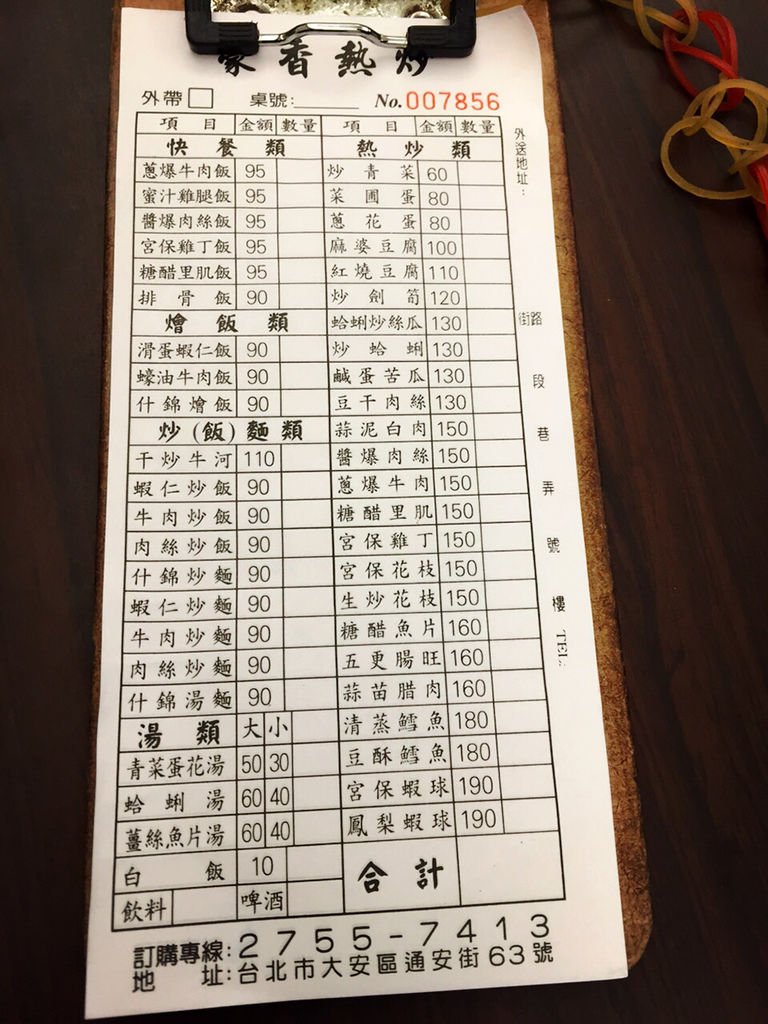 香熱炒
外帶 桌號: No.007856
項目 金額 數量 項目 金額 數量
快餐類
蔥爆牛肉飯 95
蜜汁雞腿飯 95
醬爆肉絲飯 95
宮保雞丁飯 95
糖醋里肌飯 95
排骨飯 90
燴飯類
滑蛋蝦仁飯 90
蠔油牛肉飯 90
什錦燴飯 90
炒(飯)麵類
干炒牛河 110
蝦仁炒飯 90
牛肉炒飯 90
肉絲炒飯 90
什錦炒麵 90
蝦仁炒麵 90
牛肉炒麵 90
肉絲炒麵 90
什錦湯麵 90
湯類 大 小
青菜蛋花湯 50 30
蛤蜊湯 60 40
薑絲魚片湯 60 40
白飯 10
飲料 啤酒
熱炒類
炒青菜 60
菜圃蛋 80
蔥花蛋 80
麻婆豆腐 100
紅燒豆腐 110
炒劍筍 120
蛤蜊炒絲瓜 130
炒蛤蜊 130
鹹蛋苦瓜 130
豆干肉絲 130
蒜泥白肉 150
醬爆肉絲 150
蔥爆牛肉 150
糖醋里肌 150
宮保雞丁 150
宮保花枝 150
生炒花枝 150
糖醋魚片 160
五更腸旺 160
蒜苗腊肉 160
清蒸鱈魚 180
豆酥鱈魚 180
宮保蝦球 190
鳳梨蝦球 190
合計
外送地址: 街路 段 巷 弄 號 樓 TEL:
訂購專線: 2755-7413
地址: 台北市大安區通安街63號